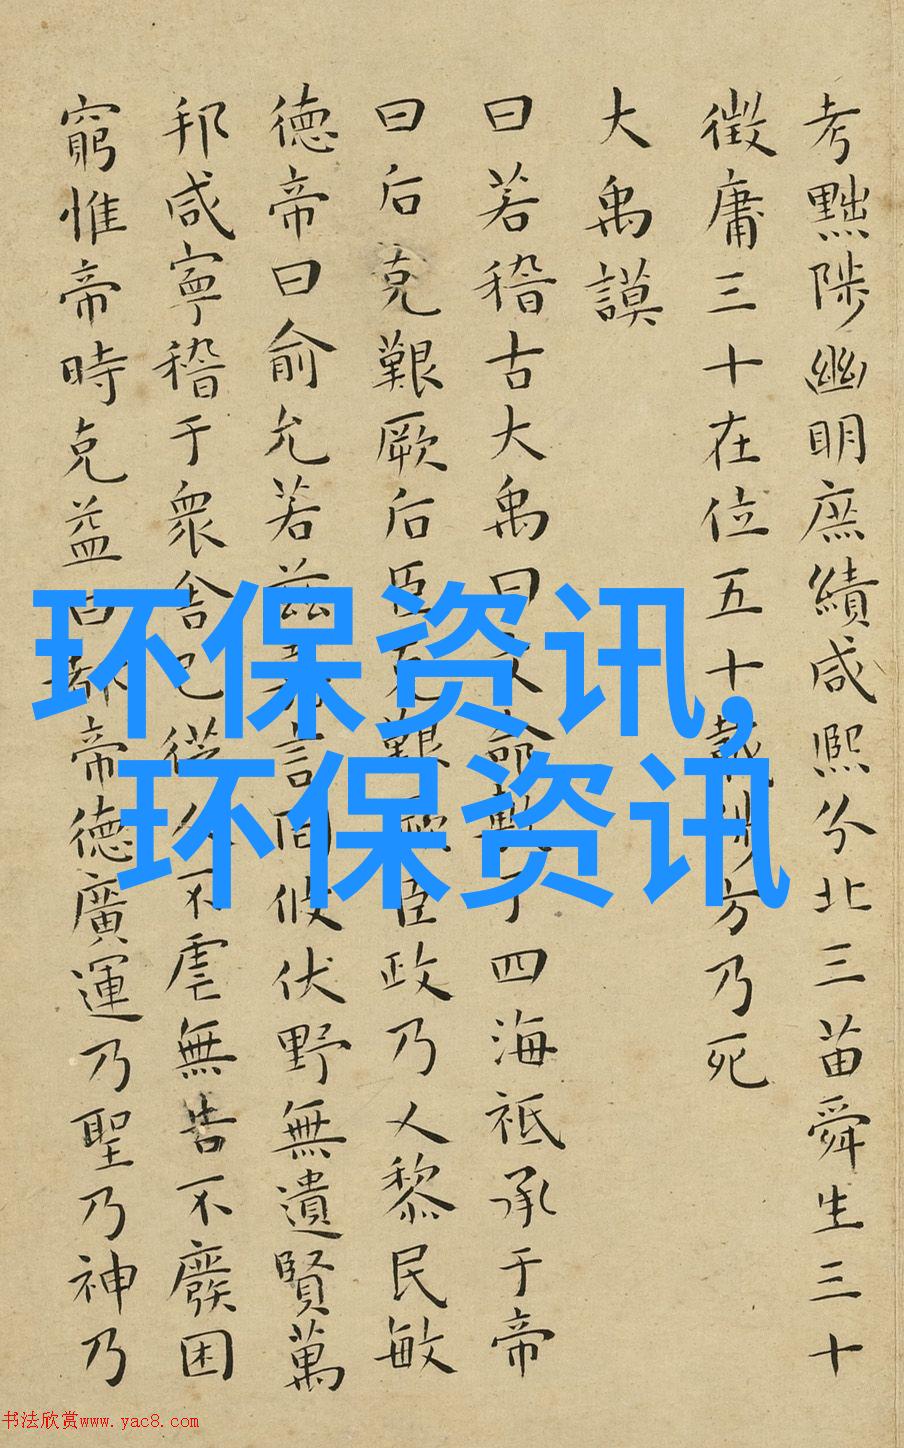 考黜陟幽明庶績咸熙分北三苗舜生三十
徵庸三十在位五十載陟方乃死
大禹謨
曰若稽古大禹曰文命敷于四海祗承于帝
曰后克艱厥后臣克艱厥臣政乃乂黎民敏
德帝曰俞允若茲嘉言罔攸伏野無遺賢萬
邦咸寧稽于衆舍己從人不虐無告不廢困
窮惟帝時克益曰都帝德廣運乃聖乃神乃
环保资讯,
环保资讯
书法欣赏www.yac8.com